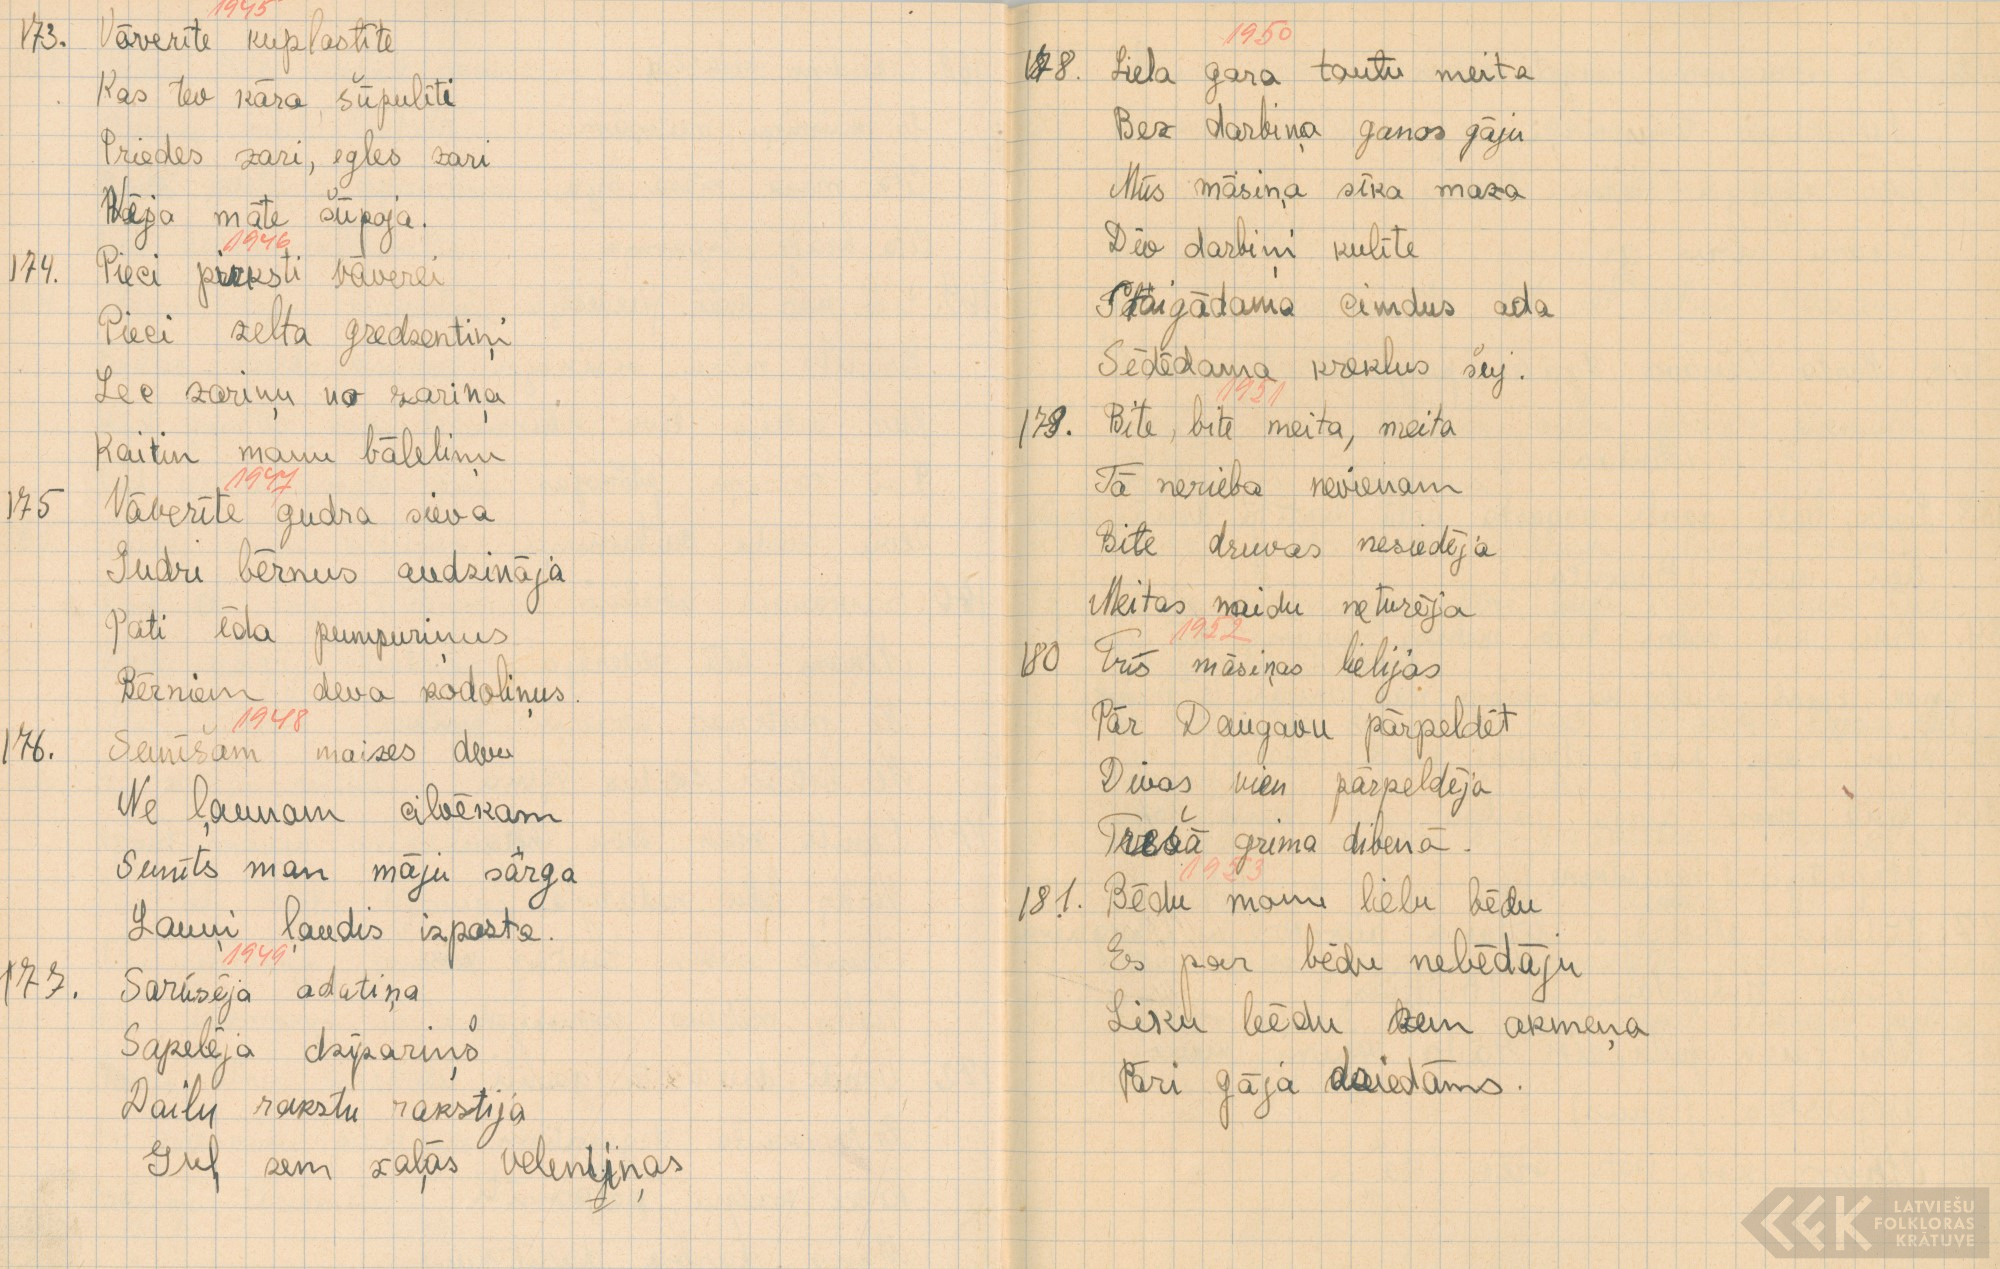 1945
173. Vāverīte kuplastīte
Kas tev kāra šūpulīti
Priedes zari, egles zari
Vēja māte šūpoja.
1946
174. Pieci pirksti vāverei
Pieci zelta gredzentiņi
Lec zariņu no zariņa
Kaitin manu bāleliņu
1947
175 Vāverīte gudra sieva
Gudri bērnus audzināja
Pati ēda pumpuriņus
Bērniem deva kodoliņus.
1948
176. Sunīšam maizes devu
Ne ļaunam cilvēkam
Sunīts man māju sārga
Ļauni ļaudis izposta.
1949
177. Sarūsēja adatiņa
Sapelēja dzīpariņš
Dailu rakstu rakstīja
Guļ zem zaļās velēniņas
1950
178. Liela gara tautu meita
Bez darbiņa ganos gāju
Mūs māsiņa sīka maza
Div darbiņi kulīte
Staigādama cimdus ada
Sēdēdama kreklus šuj.
1951
179. Bite, bite meita, meita
Tā nerieba nevienam
Bite druvas nesiedēja
Meitas naidu neturēja
1952
180 Trīs māsiņas lielijās
Pār Daugavu pārpeldēt
Divas vien pārpeldēja
Trešā grima dibenā.
1953
181. Bēdu manu lielu bēdu
Es par bēdu nebēdāju
Liku bēdu zem akmeņa
Pāri gāja dziedāms.
LATVIEŠU
FOLKLORAS
KRĀTUVE